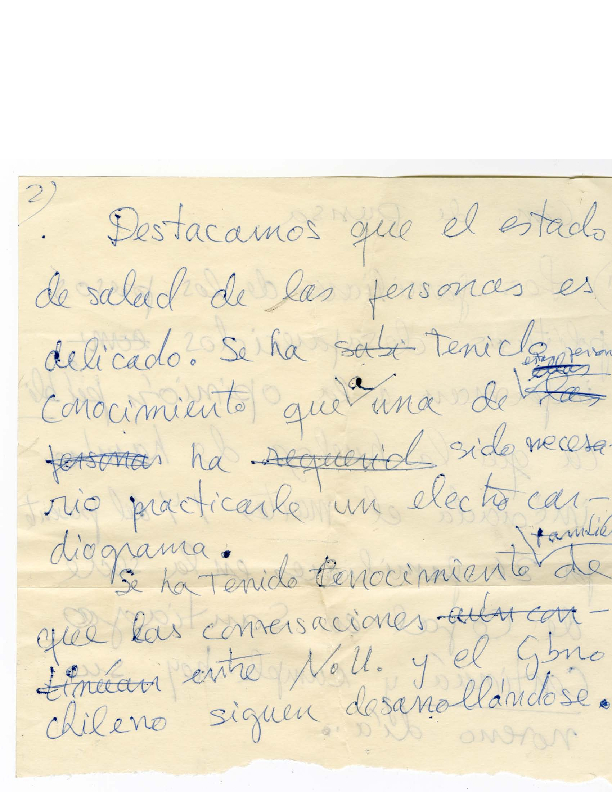 2)
. Destacamos que el estado
de salud de las personas es
delicado. Se ha sabi tenido
estas person
ellas
conocimiento que a una de las
personas ha requerid sido necesa-
rio practicarle un electro car-
diograma.
tambié
Se ha tenido conocimiento de
que las conversaciones aún con-
tinúan entre N.U. y el Gbno
chileno siguen desarrollándose.